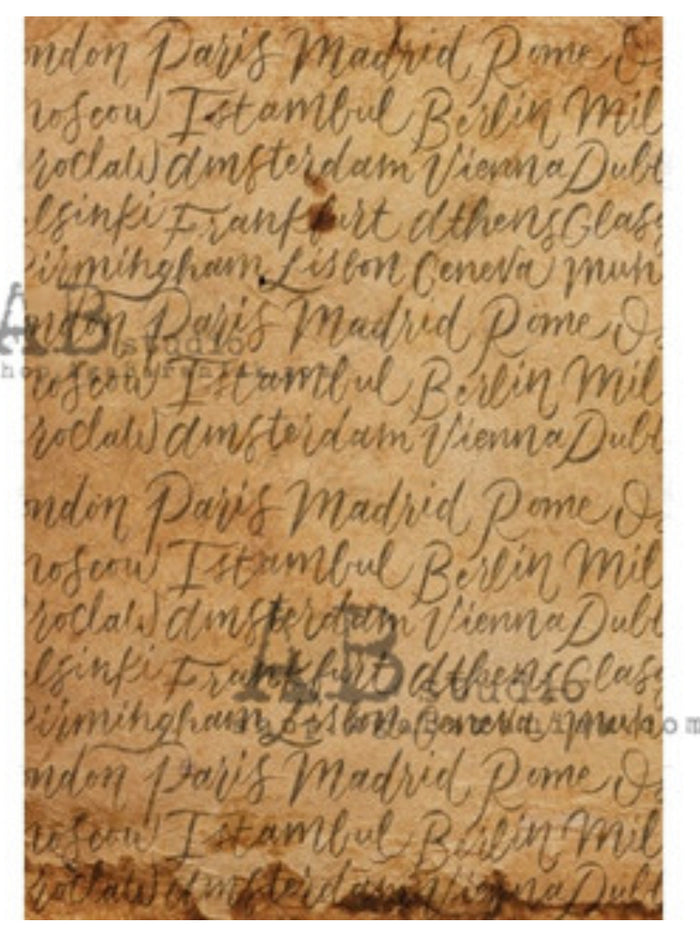 ndon Paris Madrid Rome Os
noscow Istambul Berlin Mil
roclaw amsterdam Vienna Dubl
lsinki Frankfurt athens Glasg
irmingham Lisbon Geneva mun
ndon Paris Madrid Rome Os
AB studio
noscow Istambul Berlin Mil
roclaw amsterdam Vienna Dubl
ndon Paris Madrid Rome Os
noscow Istambul Berlin Mil
roclaw amsterdam Vienna Dubl
lsinki Frankfurt athens Glasg
AB studio
irmingham Lisbon Geneva mun
ndon Paris Madrid Rome Os
noscow Istambul Berlin Mil
roclaw amsterdam Vienna Dubl